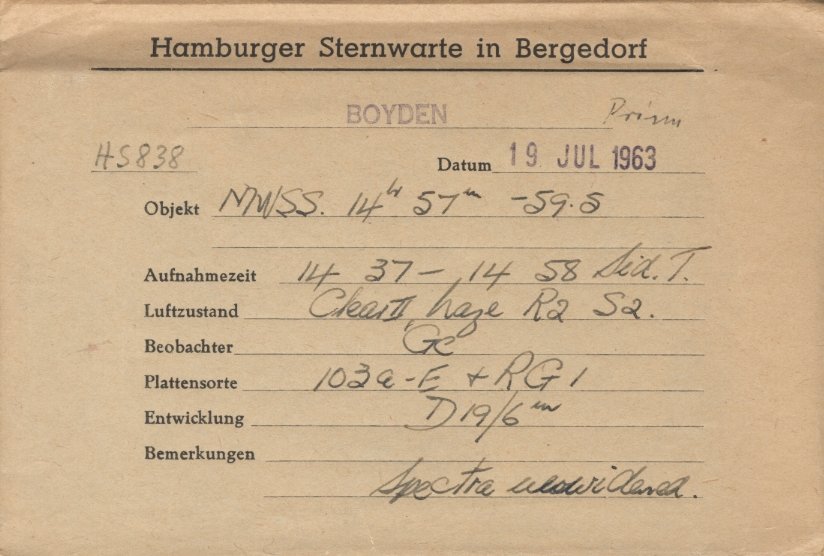 Hamburger Sternwarte in Bergedorf
BOYDEN Prism
HS838 Datum 19 JUL 1963
Objekt MWSS. 14h 57m -59.5
Aufnahmezeit 14 37 - 14 58 Sid. T.
Luftzustand Clear II, haze R2 S2.
Beobachter Ge
Plattensorte 103a-E + RG1
Entwicklung D19/6m
Bemerkungen
Spectra unwidened.